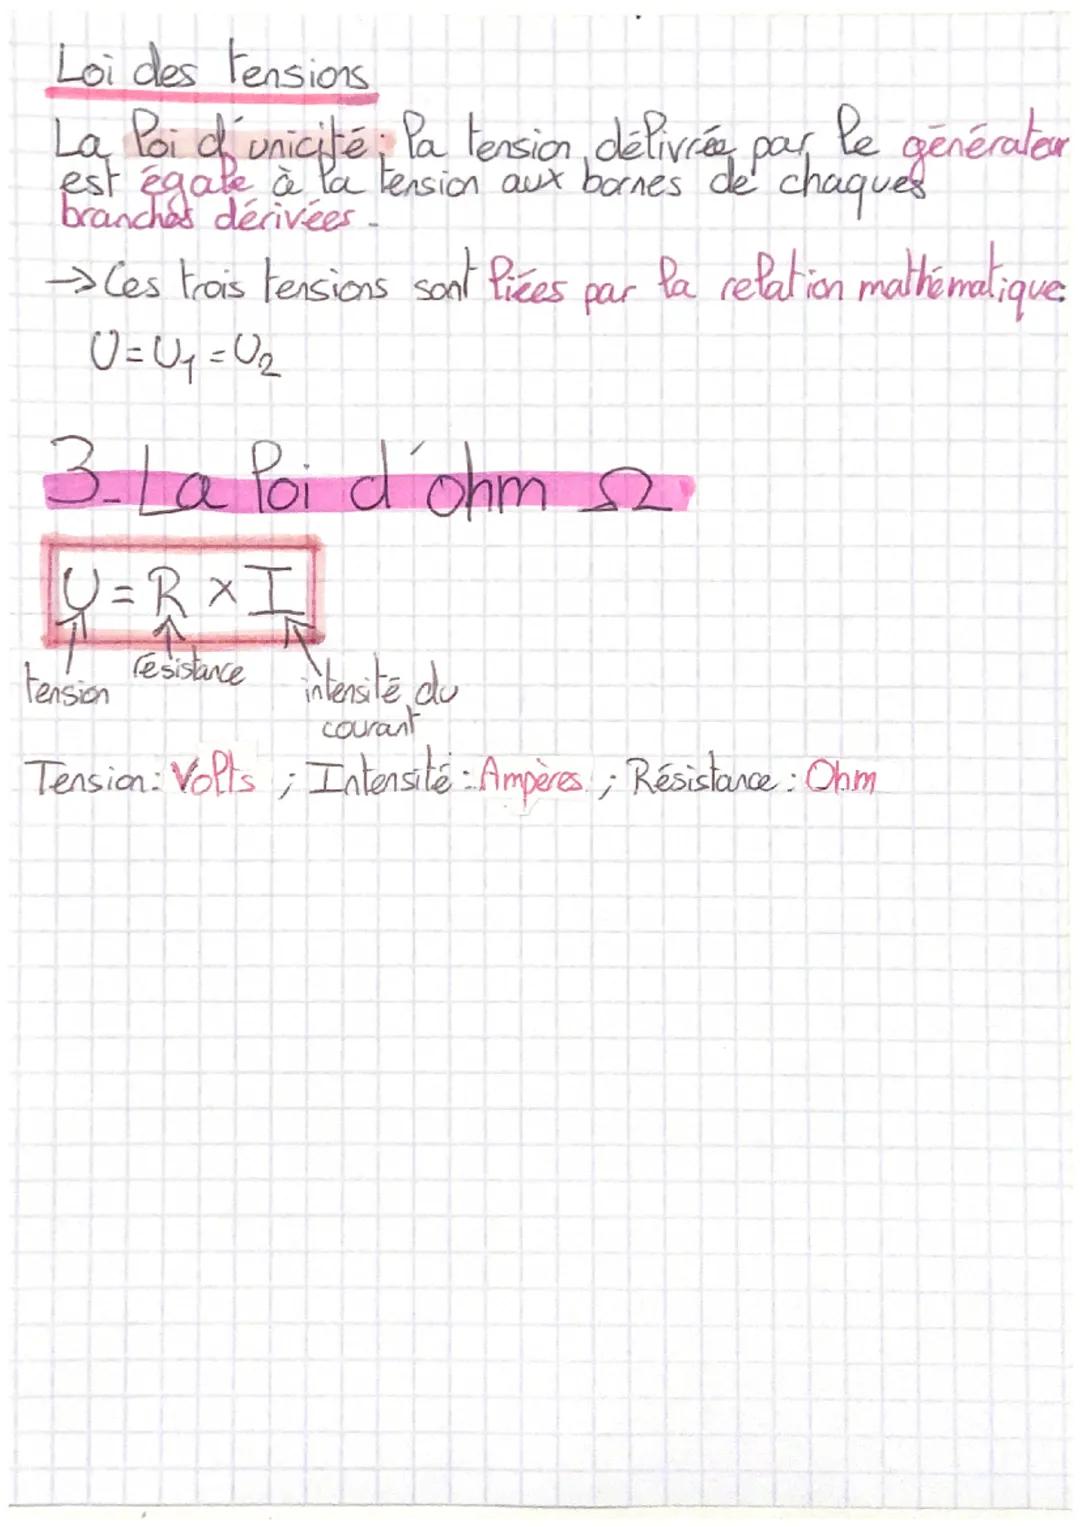 Loi des tensions
La loi d'unicité: la tension délivrée par le générateur
est égale à la tension aux bornes de chaques
branches dérivées.
→ Ces trois tensions sont liées par la relation mathématique:
U=U1=U2
3-La loi d'ohm Ω
U=R×I
tension résistance intensité du
courant
Tension: Volts ; Intensité: Ampères ; Résistance: Ohm